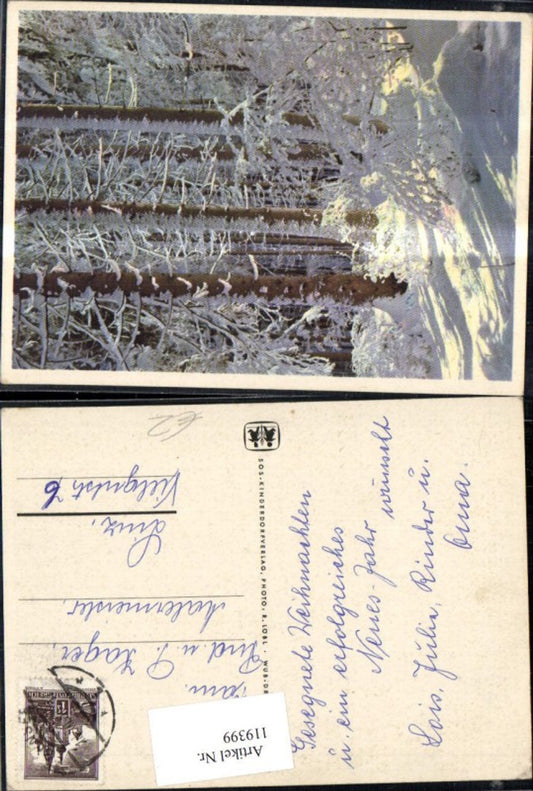 Gesegnete Weihnachten
u. ein erfolgreiches
Neues Jahr wünscht
Lois, Julia, Kinder u.
Oma.
SOS-KINDERDORFVERLAG, PHOTO, R. LÖBL - WÜB-DR
Fam.
Ferd. u. P. Hager,
Malermeister,
Linz,
6
Artikel Nr.
119399